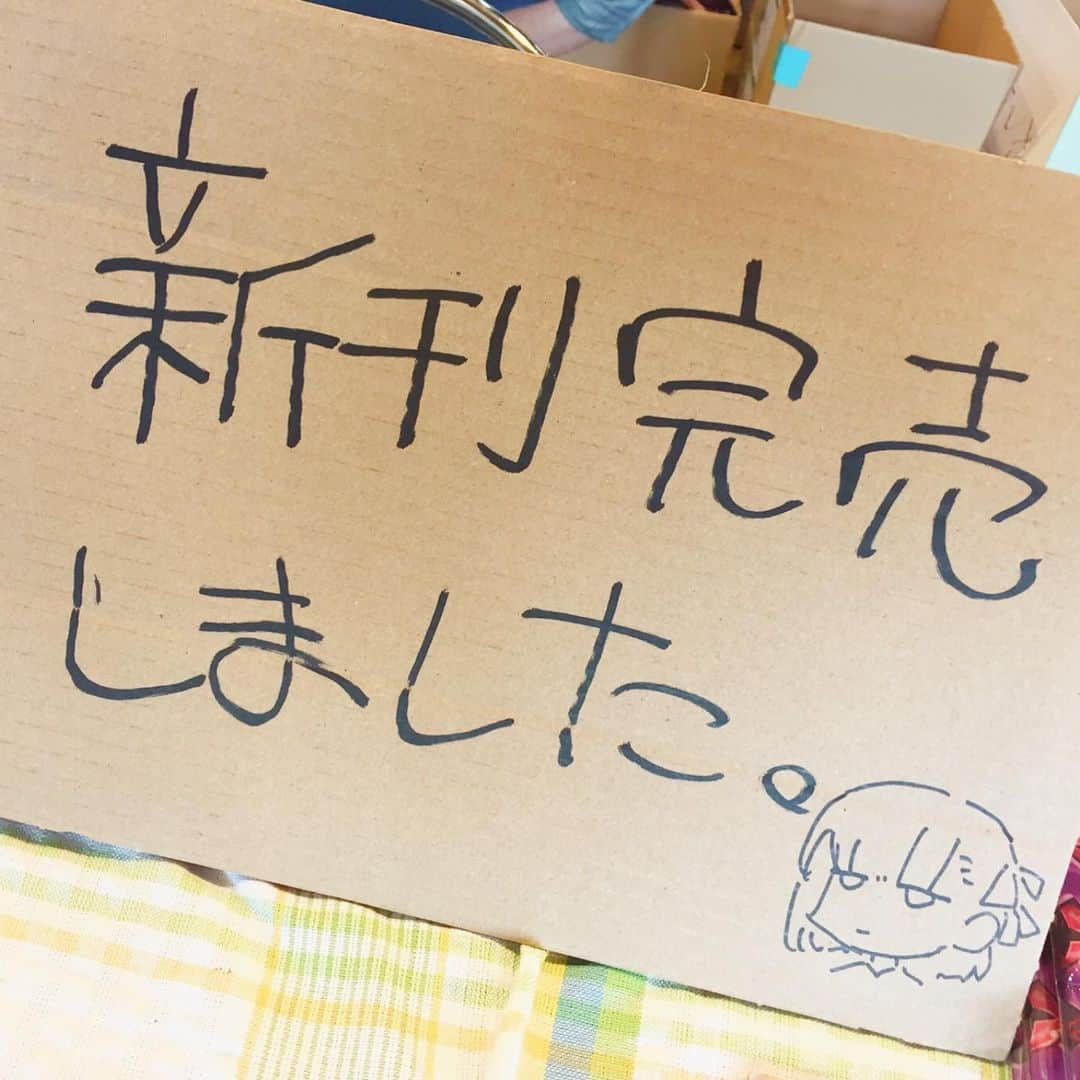 新刊完売
しました。